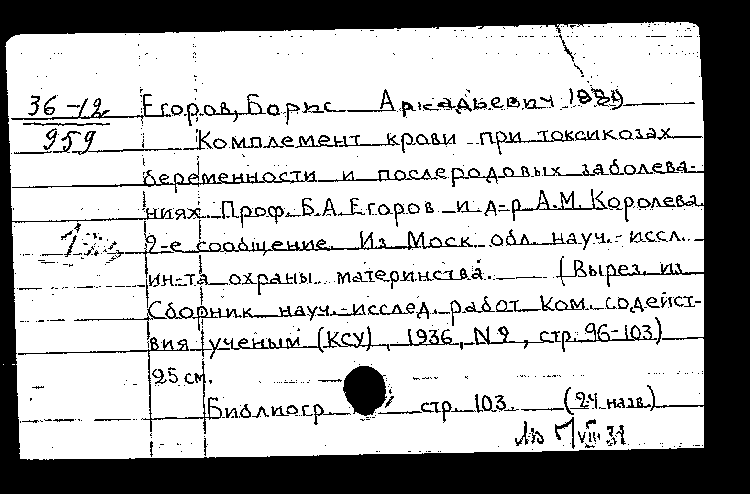 36-12
959
Егоров, Борис Аркадьевич
Комплемент крови при токсикозах
беременности и послеродовых заболева-
ниях. Проф. Б.А. Егоров и д-р А.М. Королева.
2-е сообщение. Из Моск. обл. науч.-иссл.
ин-та охраны материнства. (Вырез. из
Сборник науч.-исслед. работ Ком. содейст-
вия ученым (КСУ), 1936, N 2, стр. 96-103)
25 см.
Библиогр. стр. 103. (24 назв.)